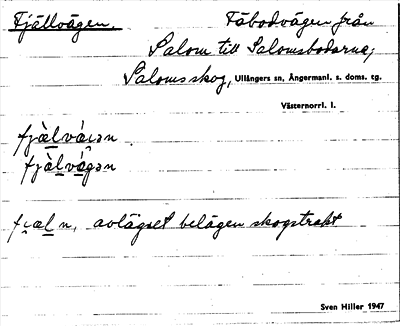 Fjällvägen. Fäbodvägen från
Salom till Salomsbodarna,
Saloms skog, Ullångers sn, Ångermanl. s. doms. tg.
Västernorrl. l.
fjælvægən
fjælvágən
fjæl n, avlägset belägen skogstrakt
Sven Hiller 1947